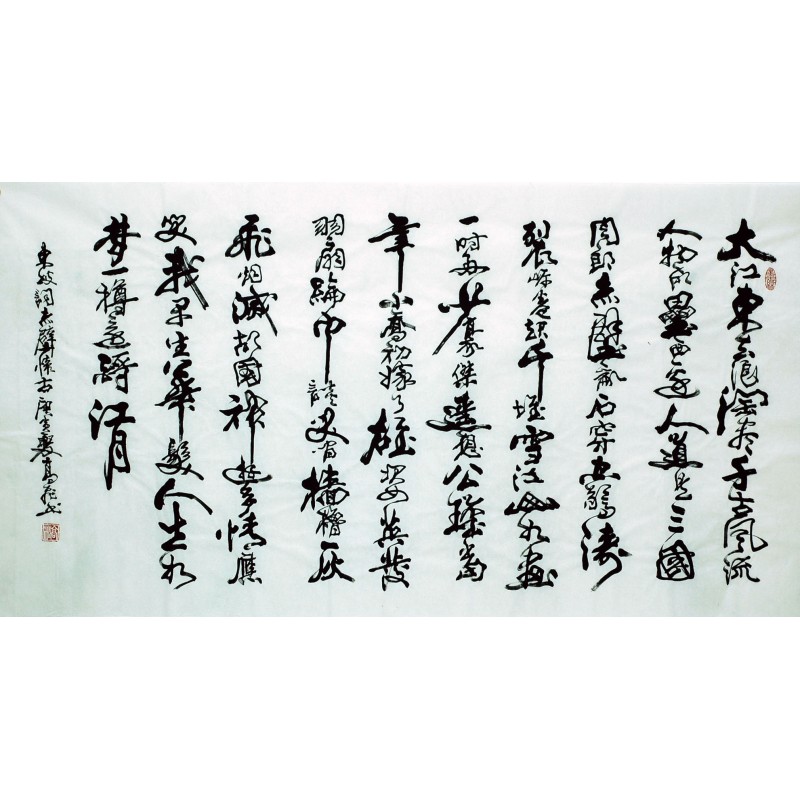 大江東去浪淘盡千古風流
人物故壘西邊人道是三國
周郎赤壁亂石穿空驚濤
裂岸卷起千堆雪江山如畫
一時多少豪傑遙想公瑾當
年小喬初嫁了雄姿英發
羽扇綸巾談笑間檣櫓灰
飛烟滅故國神遊多情應
笑我早生華髮人生如
夢一樽還酹江月
東坡詞赤壁懷古庚寅